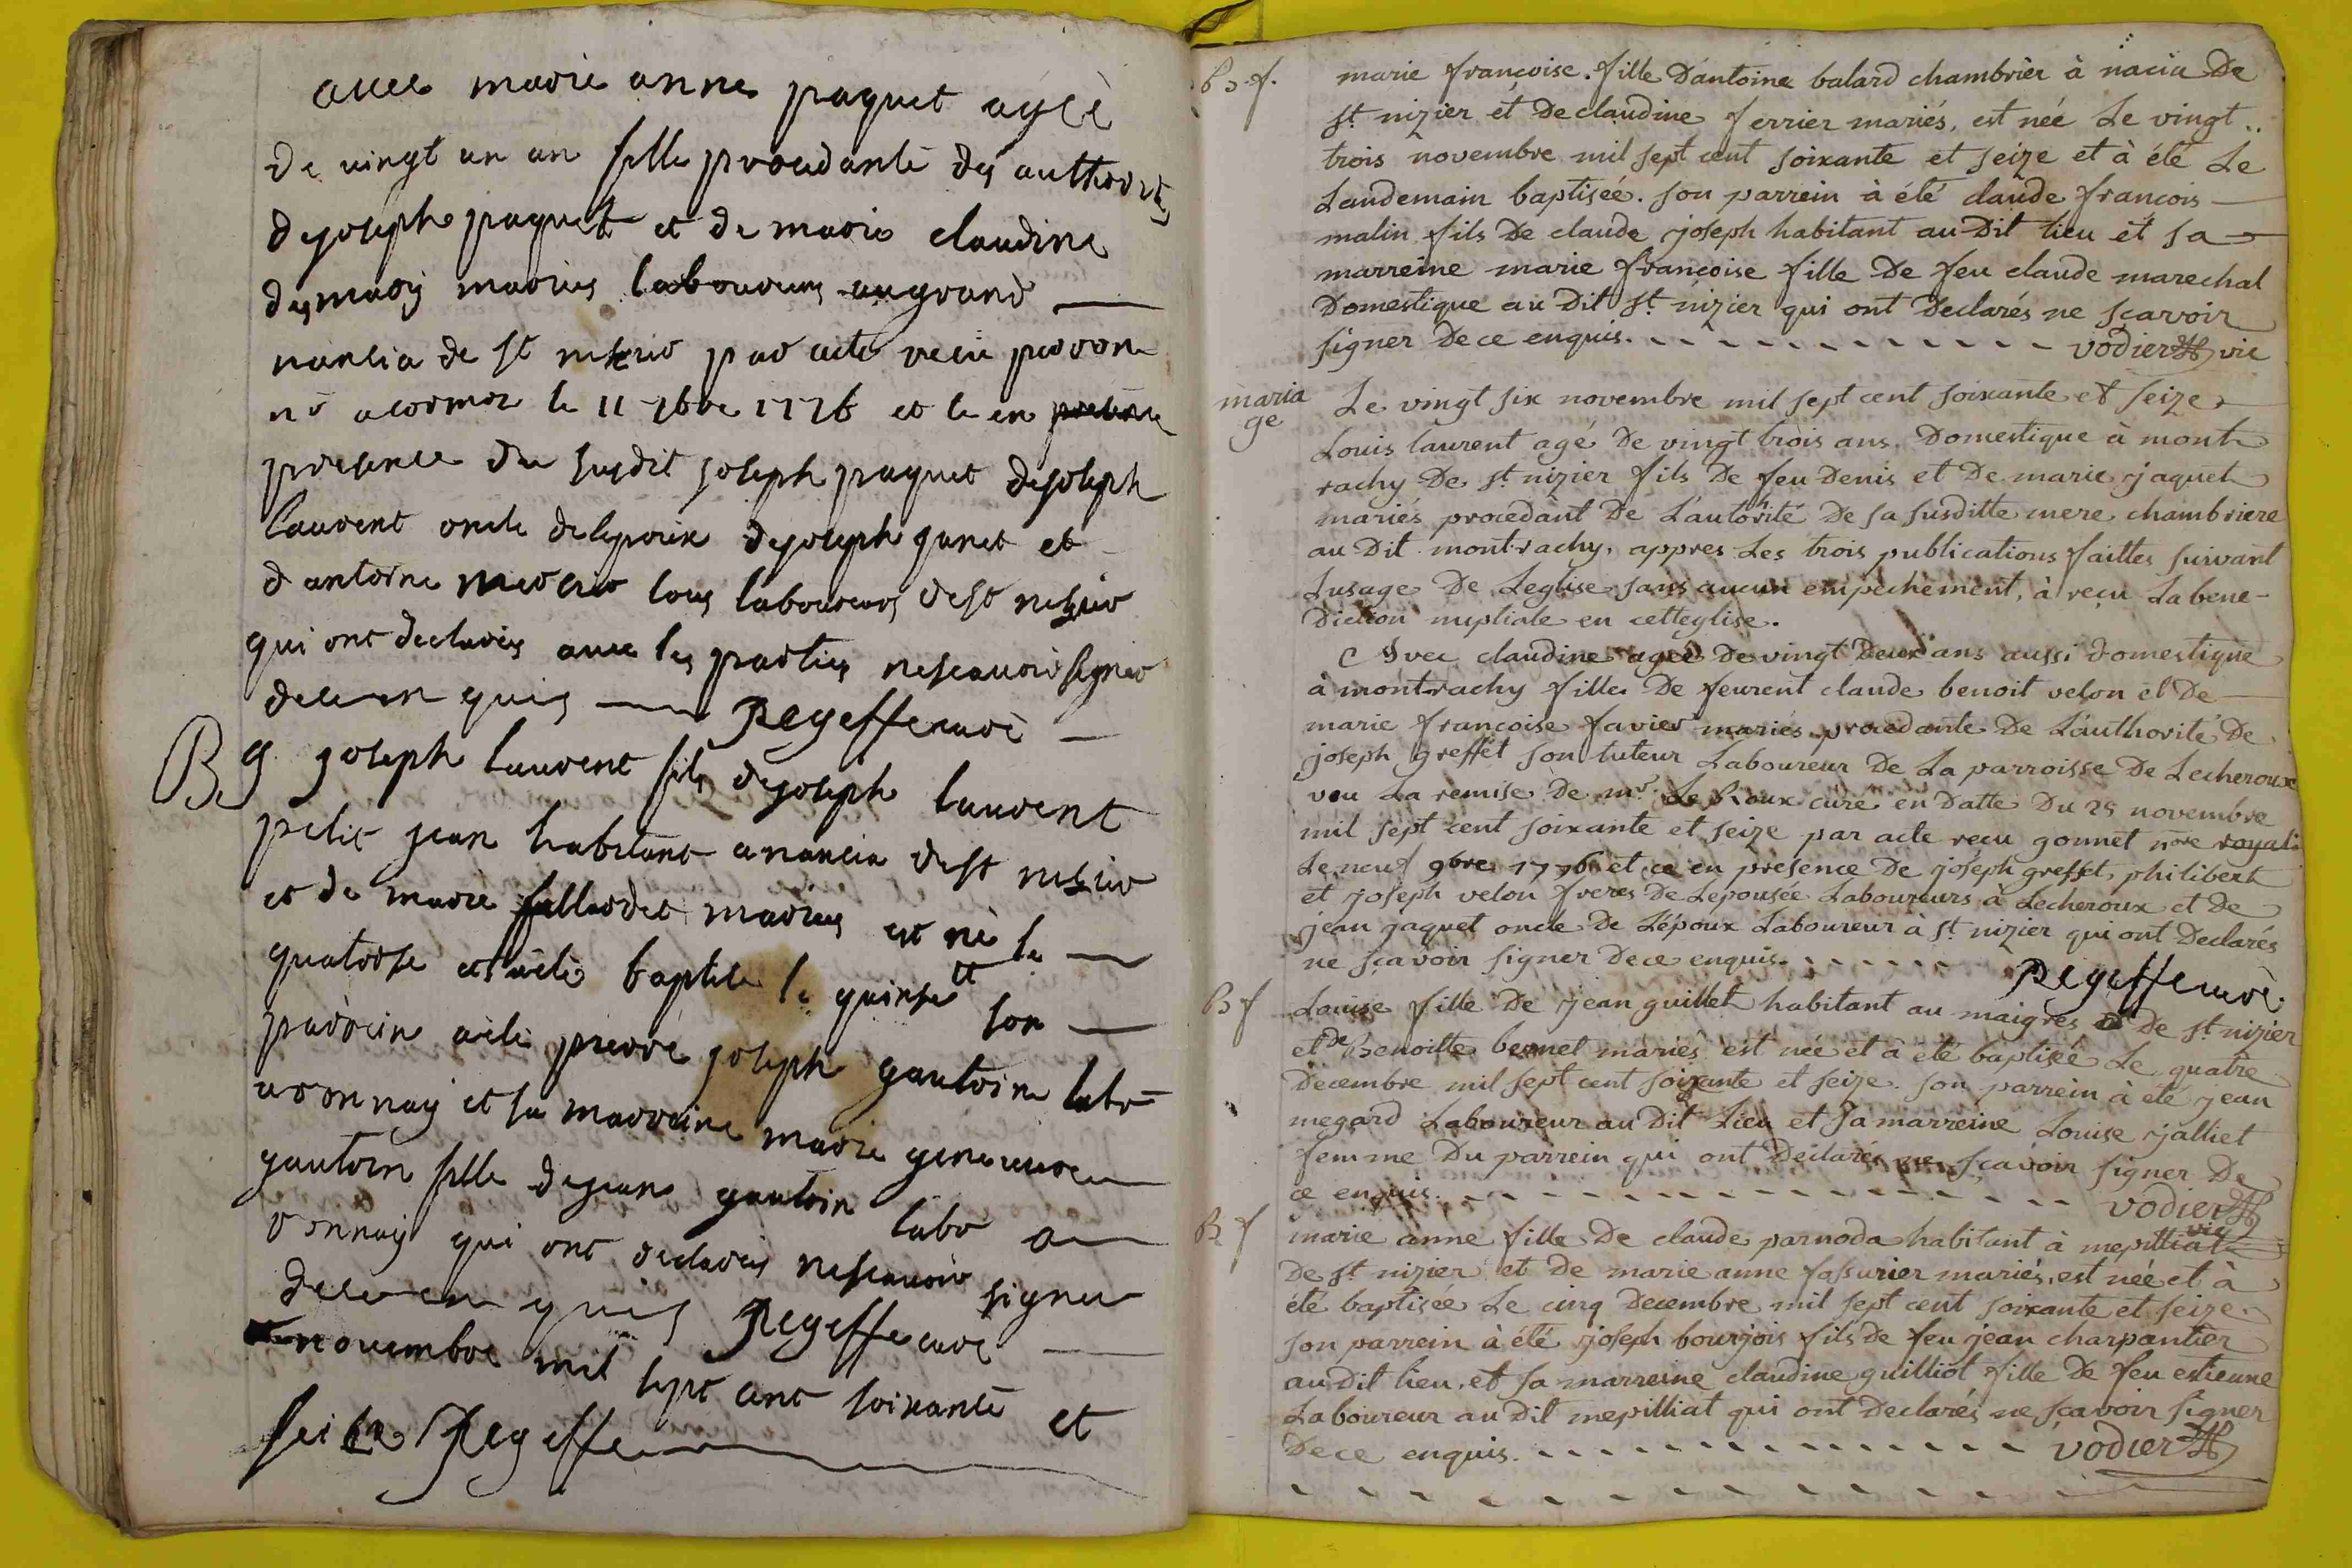 avec marie anne paquet agèe
de vingt un an fille procedante des authorités
de joseph paquet et de marie claudine
desmaris mariés laboureurs au grand
nancia de st nisier par acte recu perron
nre a cormoz le 11 9bre 1776 et ce en
presence du susdit joseph paquet de joseph
laurent oncle de lepoux de joseph gunet et
d antoine mercier tous laboureurs de st nisier
qui ont declarés avec les parties ne scavoir signer
de ce en quis Regeffe curé
B g joseph laurent fils de joseph laurent
petit jean habitant a nancia de st nisier
et de marie fillardet mariés est né le
quatorse et a été baptisé le quinse et son
parrein a été pierre joseph gautoin labo
a romnay et sa marreine marie genevieve
gautoin fille de jean gautoin labo a
romnay qui ont declarés ne scavoir signer
de ce en quis Regeffe curé
novembre mil sept cent soixante et
seize Regeffe
B. f. marie françoise. fille D'antoine balard chambrier à nacia De
st. nizier et De claudine ferrier mariés, est née Le vingt..
trois novembre mil sept cent soixante et seize et à été Le
Landemain baptisée. son parrein à été claude françois
malin fils De claude joseph habitant au Dit lieu et sa
marreine marie françoise fille De feu claude marechal
Domestique au Dit st. nizier qui ont Declarés ne scavoir
signer De ce enquis. vodier vic
maria
ge
Le vingt six novembre mil sept cent soixante et seize
Louis laurent agé De vingt trois ans. Domestique à mont
rachy De st. nizier fils De feu Denis et De marie jaquet
mariés procedant De L'authorité De sa susditte mere chambriere
au Dit montrachy, appres Les trois publications faittes suivant
Lusage De Leglise sans aucun empechement, à reçu La bene-
Diction nuptiale en cetteglise.
Avec claudine agée De vingt Deux ans aussi domestique
à montrachy fille De feurent claude benoit velon et De
marie françoise favier mariés procedante De L'authorité De
joseph greffet son tuteur Laboureur De La parroisse De Lecheroux
veu La remise De mr. Le Roux curé en Datte Du 25 novembre
mil sept cent soixante et seize par acte recu gonnet nore royal
Le neuf 9bre 1776 et ce en presence De joseph greffet, philibert
et joseph velon freres De Lepousée Laboureurs à Lecheroux et De
jean jaquet oncle De L'époux Laboureur à st. nizier qui ont Declarés
ne sçavoir signer De ce enquis. Regeffe curé
B f Louise fille De jean guillet habitant au maigres De st. nizier
et de Benoitte bernet mariés est née et à été baptisée Le quatre
Decembre mil sept cent soixante et seize. son parrein à été jean
megard Laboureur au Dit Lieu et sa marreine Louise jalliet
femme Du parrein qui ont Déclarés ne sçavoir signer De
ce enquis. vodier vic
B f marie anne fille De claude parnoda habitant à mepilliat
De st. nizier et de marie anne fassurier mariés. est née et à
été baptisée Le cinq Decembre mil sept cent soixante et seize.
son parrein à été joseph bourjois fils de feu jean charpantier
au Dit lieu. et sa marreine claudine guilliot fille De feu estienne
Laboureur au Dit mepilliat qui ont Declarés ne sçavoir signer
De ce enquis. vodier